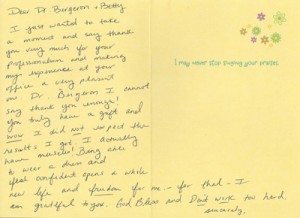 Dear Dr Bergeron + Betty
I just wanted to take
a moment and say thank
you very much for your
professionalism and making
my experience at your
office a very pleasant
one. Dr. Bergeron I cannot
say thank you enough!
You truly have a gift and
wow I did not expect the
results I got. I actually
have muscles! Being able
to wear a dress and
feel confident opens a whole
new life and freedom for me - for that - I
am grateful to you. God Bless and Don't work too hard.
Sincerely,
I may never stop singing your praises.